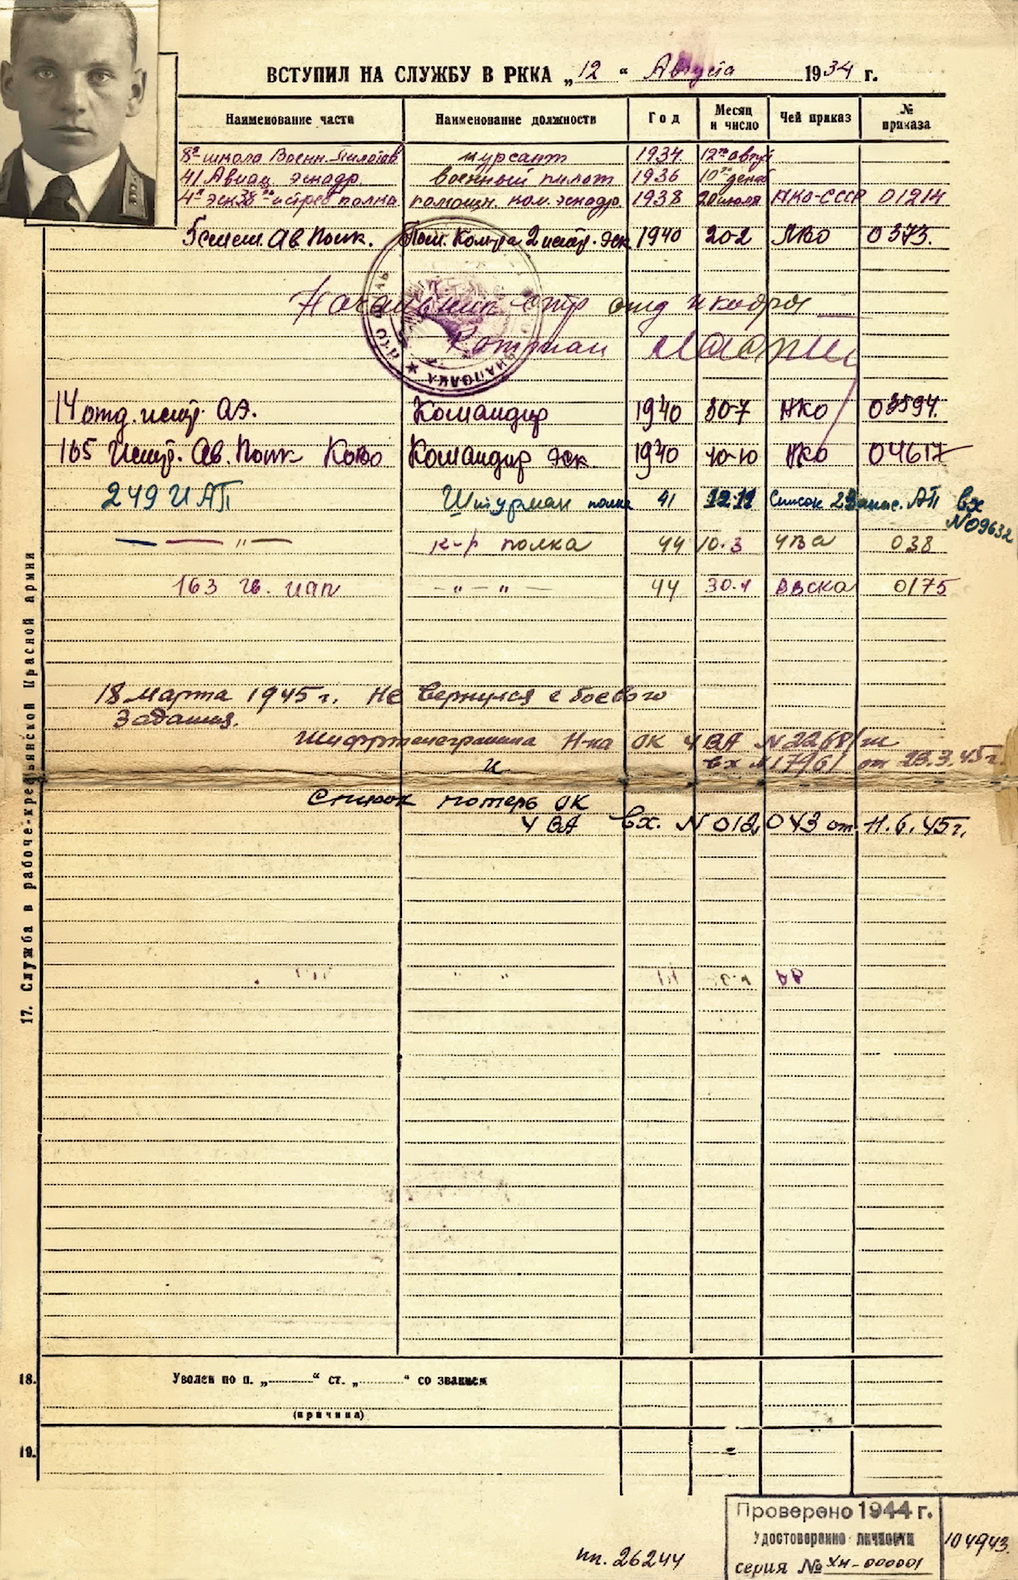 ВСТУПИЛ НА СЛУЖБУ В РККА „12“ Августа 1934 г.
Наименование части Наименование должности Год Месяц и число Чей приказ № приказа
8ая школа Военн. Пилотов курсант 1934 12го авгус
41 Авиац. эскадр. военный пилот 1936 10го декаб
4я эск. 38го истреб полка помощн. ком. эскадр. 1938 20 июля НКО-СССР 01214
Пом. Ком-ра 2 истр. эск 1940 20-2 ЛВО 0373.
Начальник стр отд и кадра
14 отд. истр. аэ. Командир 1940 30-7 НКО 03594
165 Истр. Ав. Полк КОВО Командир эск. 1940 10-10 НКО 04617
249 ИАП Штурман полка 41 12.11 Список 2 Запас. АП вх
N09632
— „ — к-р полка 44 10.3 4ВА 038
163 гв. иап — „ — „ — 44 30.4 ВВСКА 0175
18 марта 1945 г. Не вернулся с боевого
задания.
Шифртелеграмма Н-ка ОК 4 ВА N 2268/ш
и вх N17961 от 23.3.45 г.
Список потерь ОК
4 ВА вх. N 012043 от 11.6.45 г.
17. Служба в рабоче-крестьянской Красной армии
18. Уволен по п. „ “ ст. „ “ со званием
(причина)
19.
Проверено 1944 г.
Удостоверение личности
серия № ХН-000001
104943.
пп. 26244